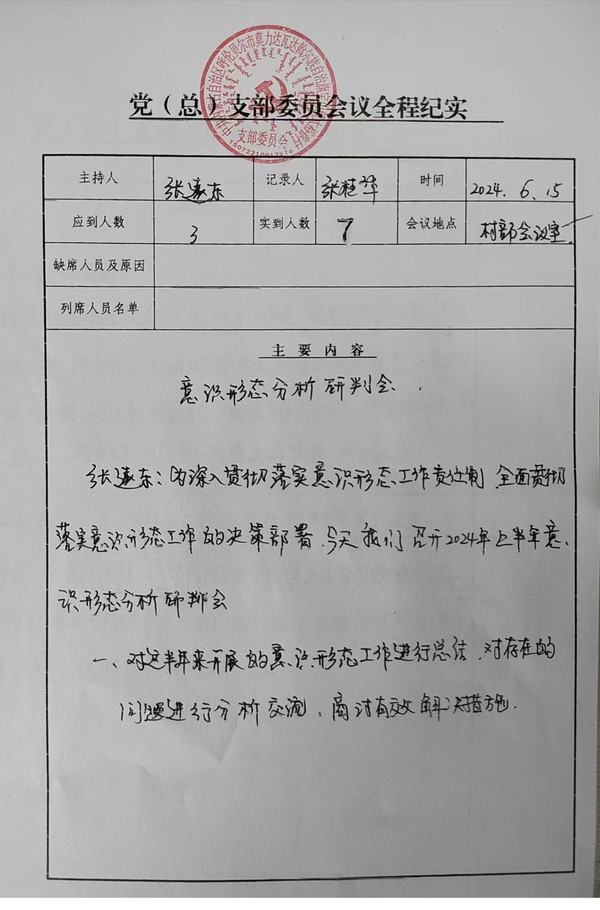 党（总）支部委员会议全程纪实
支部委员会
主持人 张远东 记录人 张桂华 时间 2024.6.15
应到人数 3 实到人数 7 会议地点 村部会议室
缺席人员及原因
列席人员名单
主要内容
意识形态分析研判会.
张远东：为深入贯彻落实意识形态工作责任制 全面贯彻
落实意识形态工作的决策部署.今天我们召开2024年上半年意
识形态分析研判会
一、对这半年来开展的意识形态工作进行总结、对存在的
问题进行分析交流、商讨有效解决措施.